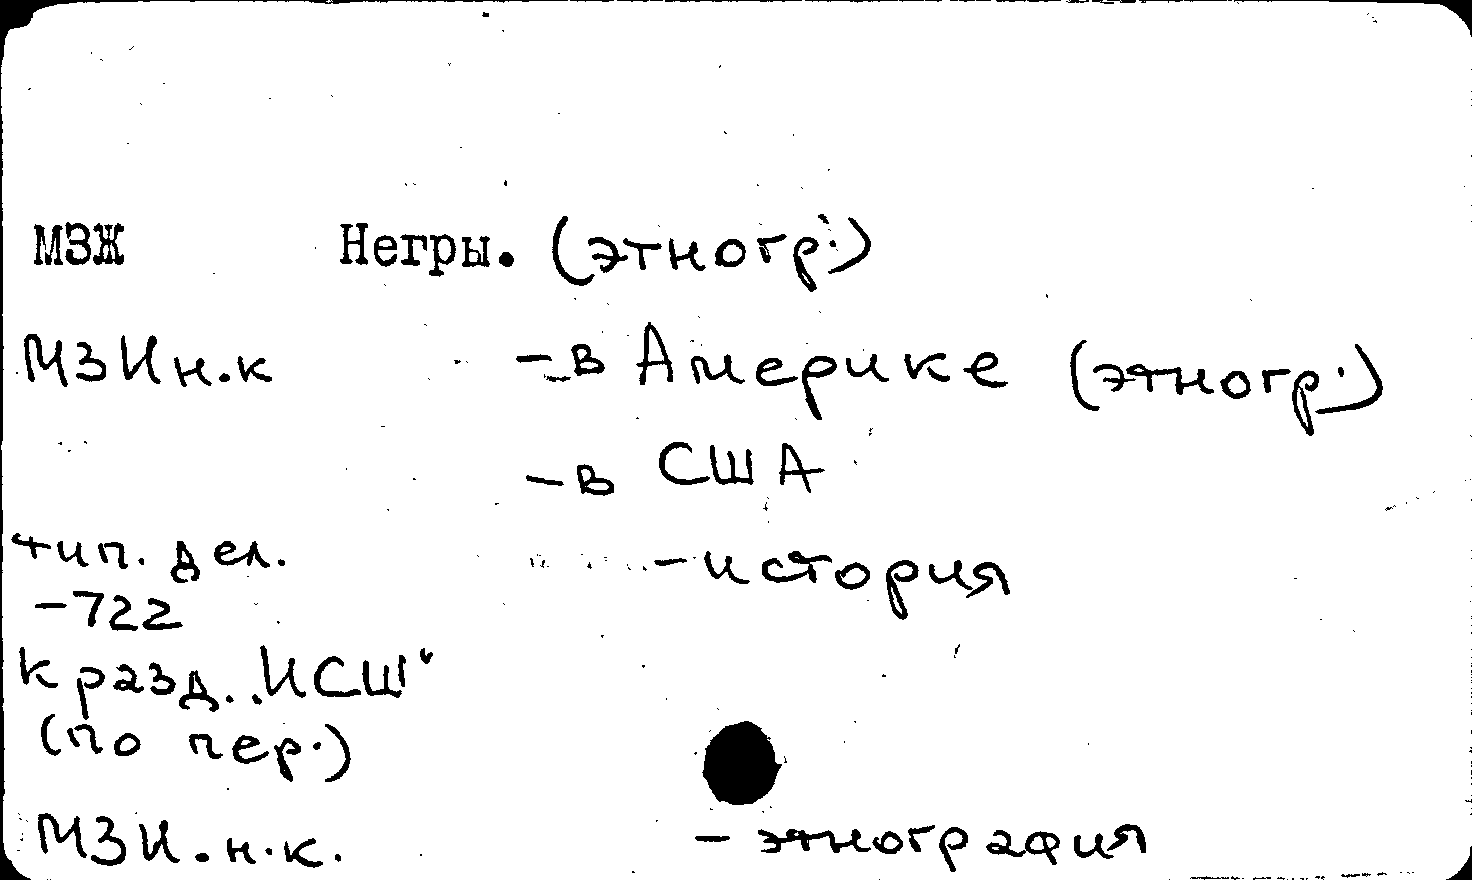 МЗЖ Негры. (этногр.)
МЗИн.к - в Америке (этногр.)
- в США
тип. дел. - история
-722
к разд. „ИСШ“
(по пер.)
МЗИ.н.к. - этнография